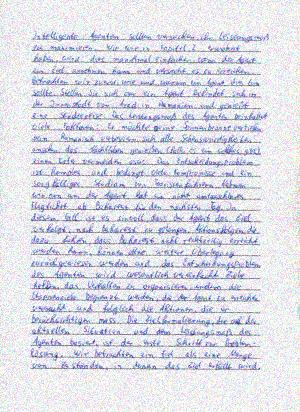 Intelligente Agenten sollten versuchen, ihr Leistungsmaß
zu maximieren. Wie wir in Kapitel 2 erwähnt
haben, wird dies manchmal einfacher, wenn der Agent
ein Ziel annehmen kann und versucht es zu erreichen.
betrachten wir zuerst, wie und warum ein Agent dies tun
sollte. Stellen Sie sich vor, ein Agent befindet sich in
der Innenstadt von Arad in Rumänien und genießt
eine Studienreise. Das Leistungsmaß des Agenten beinhaltet
viele Faktoren. Er möchte seine Sonnenbräune vertiefen
sein Rumänisch verbessern, sich alle Sehenswürdigkeiten
ansehen, das Nachtleben genießen
einen Kater vermeiden usw. Das Entscheidungsproblem
ist komplex und bedingt viele Kompromisse und ein
sorgfältiges Studium von Reiseführern. Nehmen
wir nun an, der Agent hat ein nicht umtauschbares
Flugticket ab Bukarest für den nächsten Tag. In
diesem Fall ist es sinnvoll, dass der Agent das Ziel
verfolgt, nach Bukarest zu gelangen. Aktionsfolgen, die
dazu führen, dass Bukarest nicht rechtzeitig erreicht
werden kann, können ohne weitere Überlegung
zurückgewiesen werden und das Entscheidungsproblem
des Agenten wird wesentlich vereinfacht. Ziele
helfen, das Verhalten zu organisieren, indem die
begrenzt werden, die der Agent zu erreichen
versucht und folglich die Aktionen, die er
berücksichtigen muss. Die Zielformulierung, die auf der
aktuellen Situation und dem Leistungsmaß des
Agenten basiert, ist der erste Schritt zur Problem-
lösung. Wir betrachten ein Ziel als eine Menge
von Zuständen, in denen das Ziel erfüllt wird.